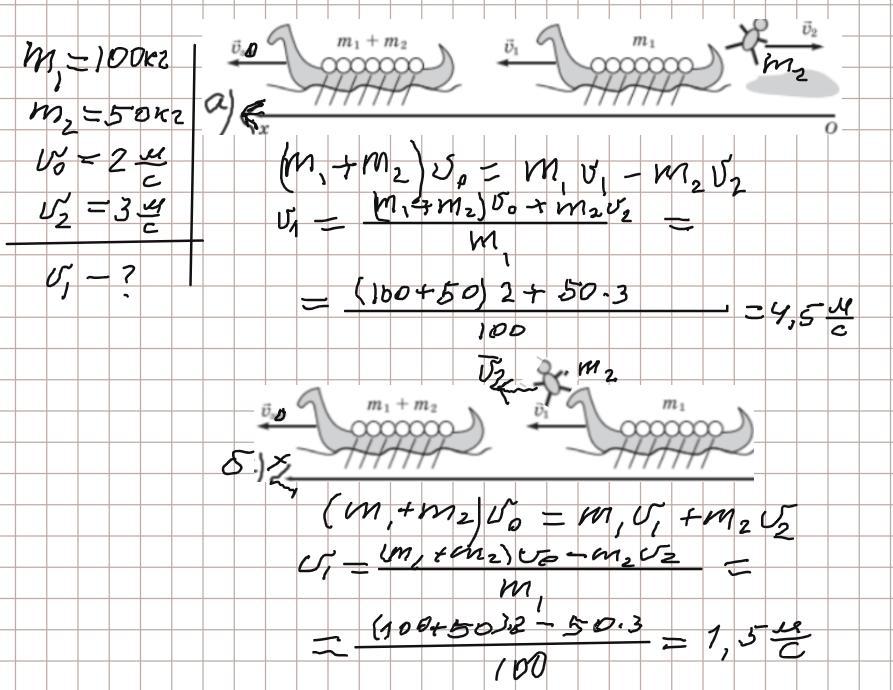 m₁ = 100кг
m₂ = 50кг
v₀ = 2 м/с
v₂ = 3 м/с
v₁ - ?
v⃗₀ m₁ + m₂ v⃗₁ m₁ v⃗₂
m₂
а) x O
(m₁ + m₂) v₀ = m₁ v₁ - m₂ v₂
v₁ = ((m₁ + m₂) v₀ + m₂ v₂) / m₁ =
= ((100 + 50) 2 + 50 · 3) / 100 = 4,5 м/с
v⃗₂ m₂
v⃗₀ m₁ + m₂ v⃗₁ m₁
б) x
(m₁ + m₂) v₀ = m₁ v₁ + m₂ v₂
v₁ = ((m₁ + m₂) v₀ - m₂ v₂) / m₁ =
= ((100 + 50) · 2 - 50 · 3) / 100 = 1,5 м/с